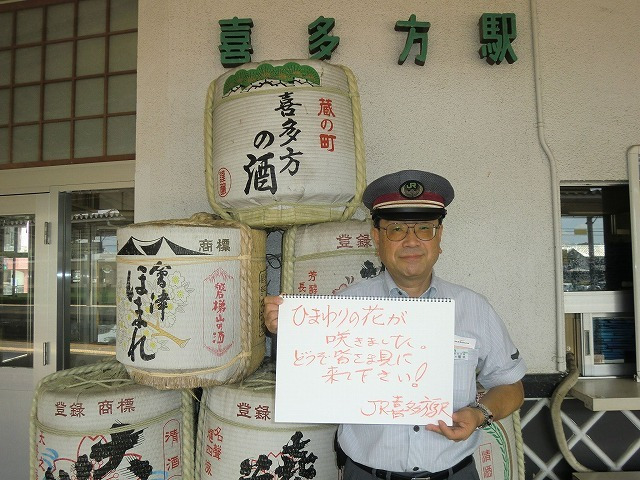 喜多方駅
蔵の町
喜多方の酒
謹醸
商標
會津ほまれ
磐梯山の酒
登録
芳醇
JR
ひまわりの花が
咲きました。
どうぞ皆さま見に
来て下さい!
JR喜多方駅
登録 商標
清酒
登録
名聲